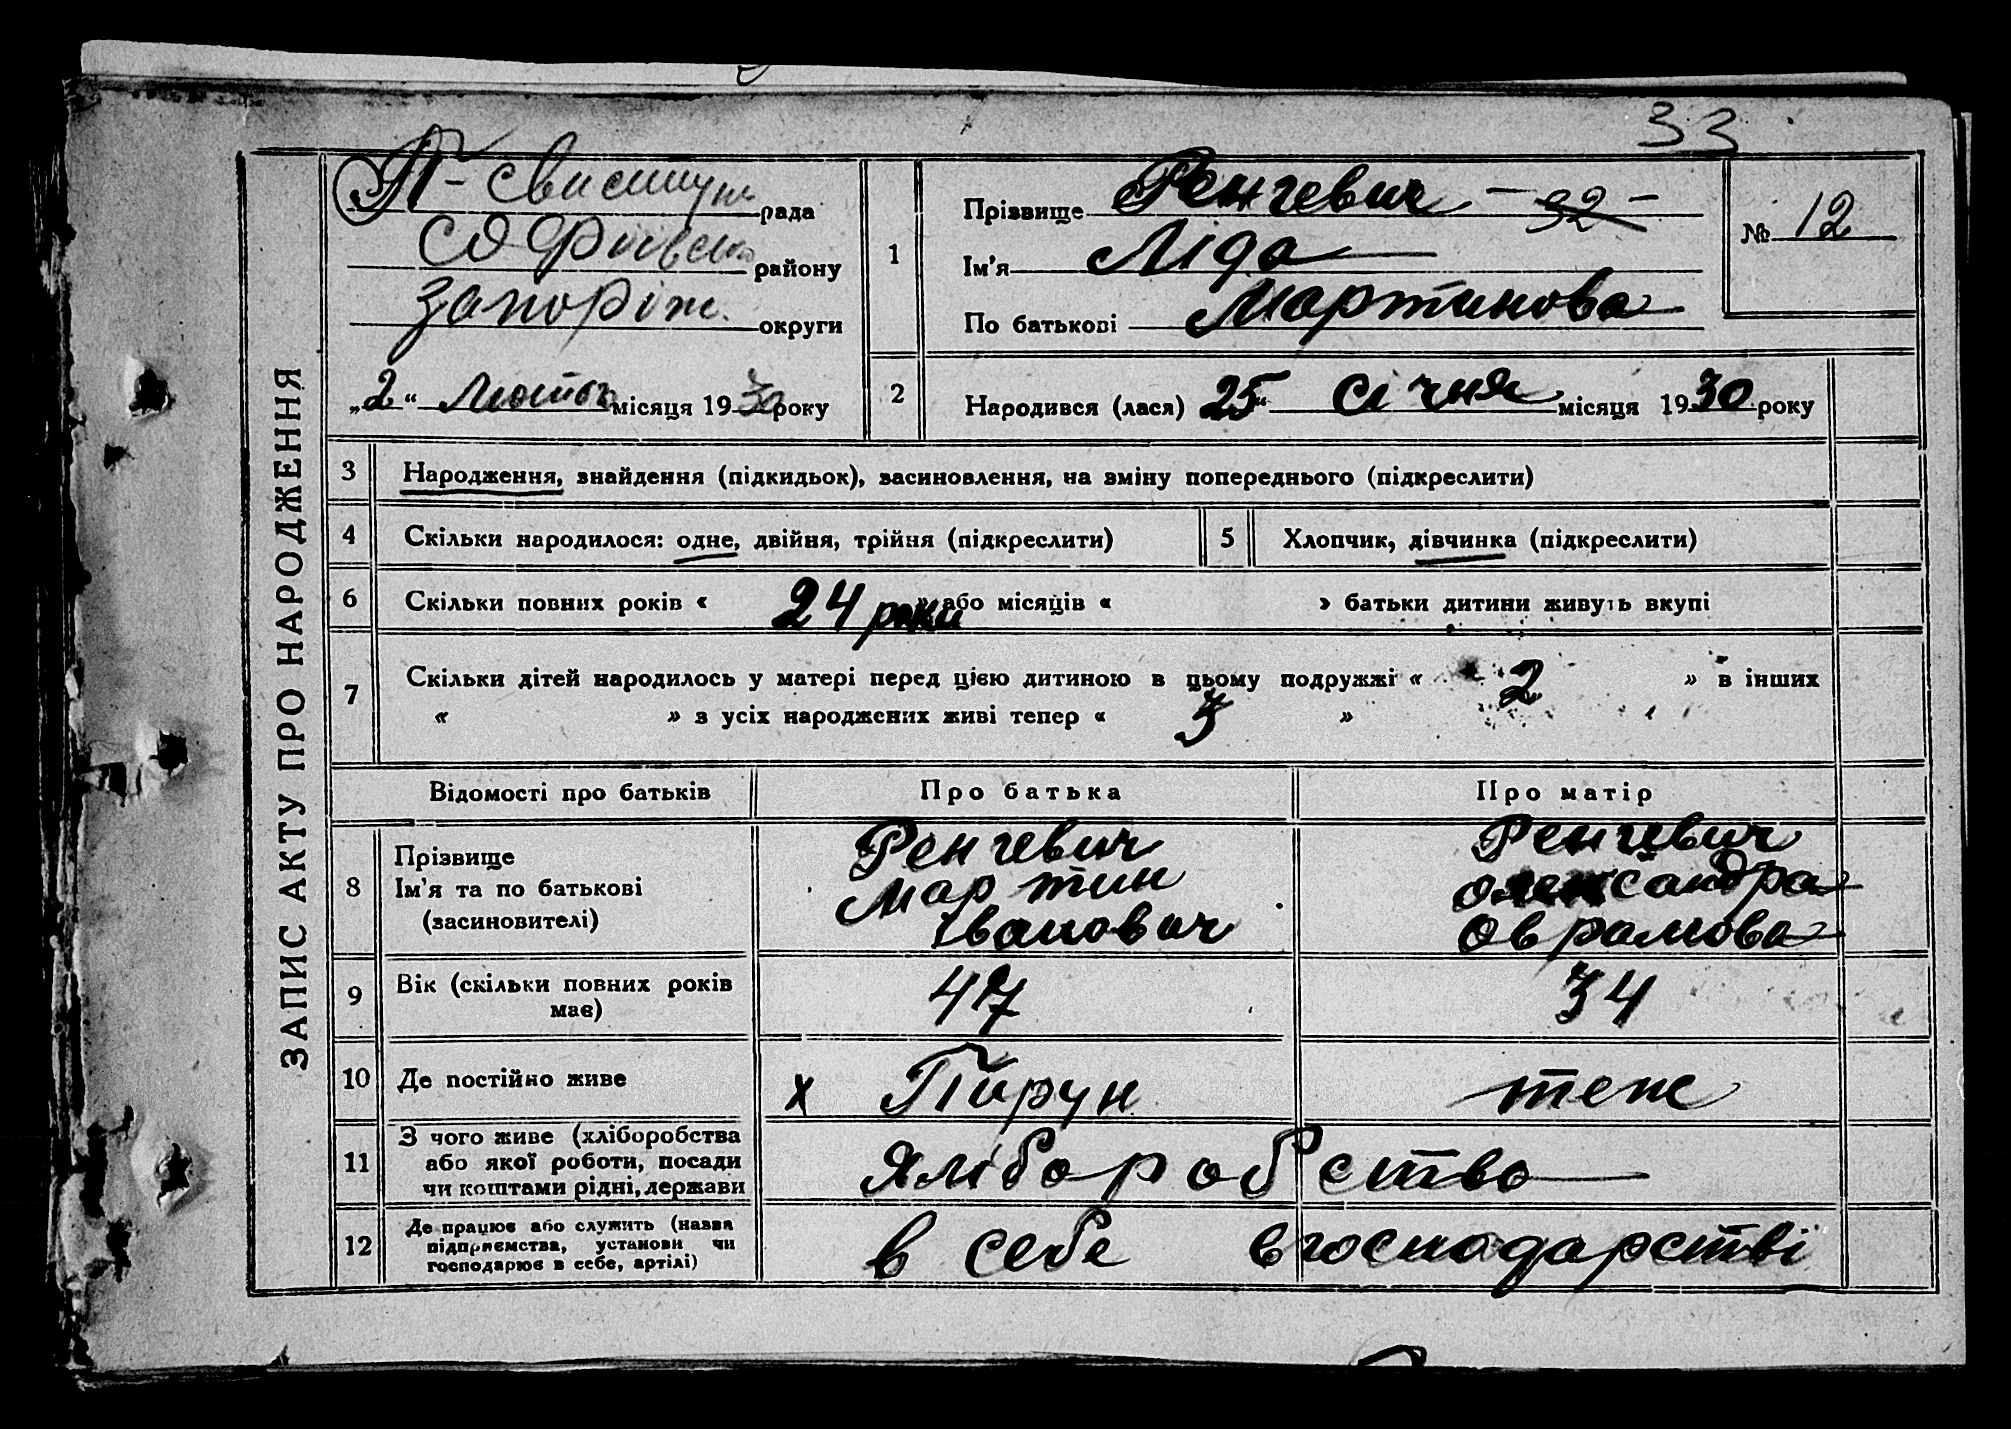 33
ЗАПИС АКТУ ПРО НАРОДЖЕННЯ
П- Свистун рада
Софиівсько району
Запоріж. округи
„2“ Лютого місяця 1930 року
1
Прізвище Ренгевич - 32 -
Ім'я Ліда
По батькові Мартинова
№ 12
2 Народився (лася) 25“ Січня місяця 1930 року
3 Народження, знайдення (підкидьок), засиновлення, на зміну попереднього (підкреслити)
4 Скільки народилося: одне, двійня, трійня (підкреслити)
5 Хлопчик, дівчинка (підкреслити)
6 Скільки повних років « 24 роки » або місяців « » батьки дитини живуть вкупі
7 Скільки дітей народилось у матері перед цією дитиною в цьому подружжі « 2 » в інших
« » з усіх народжених живі тепер « 3 »
Відомості про батьків Про батька Про матір
8
Прізвище
Ім'я та по батькові
(засиновителі)
Ренгевич
Мартин
Іванович
Ренгевич
Олександра
Оврамова
9 Вік (скільки повних років
має)
47
34
10 Де постійно живе х Пирун теж
11
З чого живе (хліборобства
або якої роботи, посади
чи коштами рідні, держави
Хліборобство
12
Де працює або служить (назва
підприємства, установи чи
господарює в себе, артілі)
в себе в господарстві